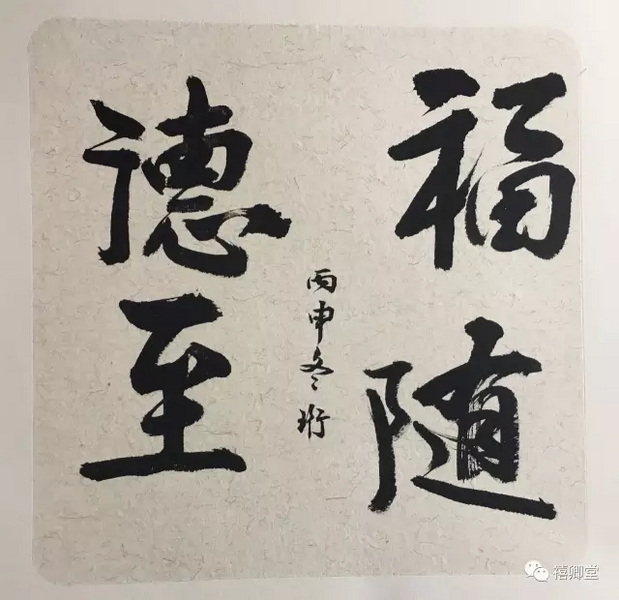 福随
德至
丙申冬珩
禧卿堂